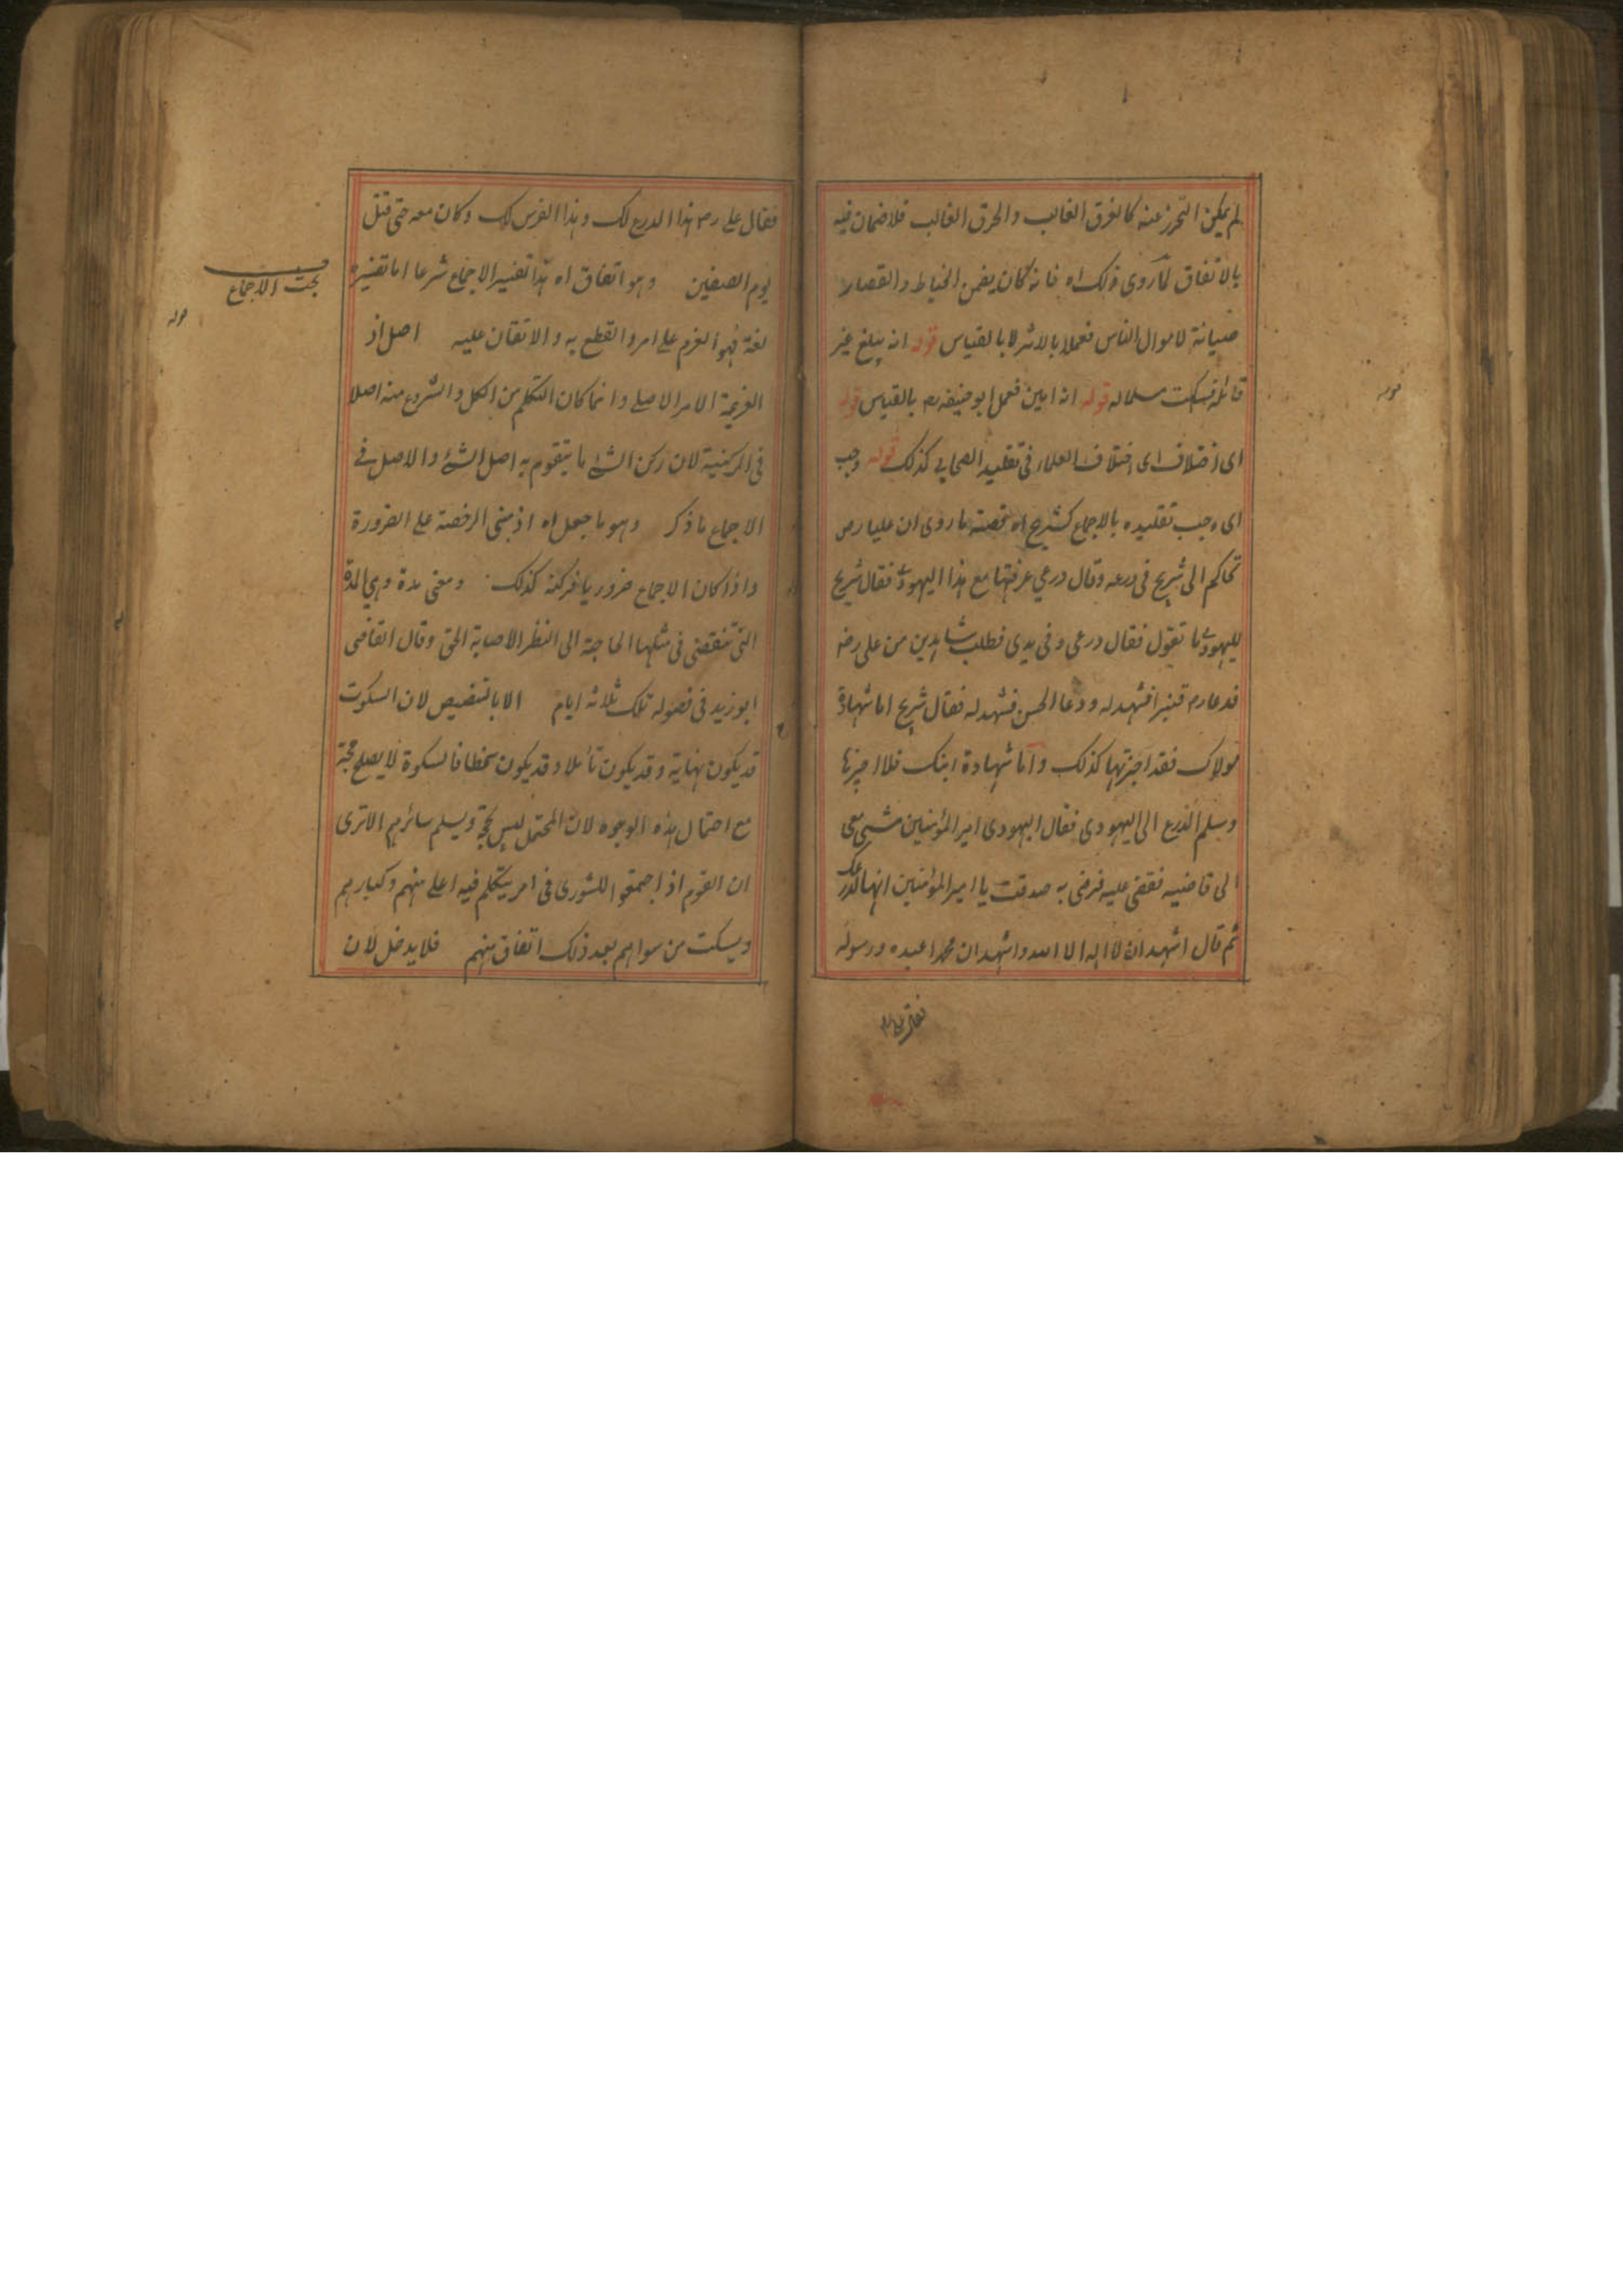 لم يمكن التحرز عنه كالغرق الغالب والحرق الغالب فلا ضمان فيه
بالاتفاق كما روى ذلك اه فانه كان يضمن الخياط والقصار
صيانة لاموال الناس فعملا بالاثر لا بالقياس قوله انه يبلغ غير
قائله فسكت مسلما له قوله انه امين فعمل ابو حنيفه رح بالقياس قوله
اى اختلاف اى اختلاف العلماء فى تقليد الصحابى كذلك قوله وجب
اى وجب تقليده بالاجماع كشريح اه قصته ما روى ان عليا رض
تحاكم الى شريح فى درعه وقال درعي عرفتها مع هذا اليهودى فقال شريح
لليهودى ما تقول فقال درعى وفى يدى فطلب شاهدين من على رض
فدعا رض قنبرا فشهد له ودعا الحسن فشهد له فقال شريح اما شهادة
مولاك فقد اجزتها كذلك واما شهادة ابنك فلا اجيزها
وسلم الدرع الى اليهودى فقال اليهودى امير المؤمنين مشى معى
الى قاضيه فقضى عليه فرضى به صدقت يا امير المؤمنين انها لدرعك
ثم قال اشهد ان لا اله الا الله واشهد ان محمدا عبده ورسوله
فقال على رض هذا الدرع لك وهذا الفرس لك وكان معه حتى قتل
يوم الصفين وهو اتفاق اه هذا تفسير الاجماع شرعا اما تفسيره
بحث الاجماع
قوله
لغة فهو العزم على امر والقطع به والاتقان عليه اصل اذ
العزيمة الامر الاصلي وانما كان التكلم من الكل والشروع منه اصلا
فى الركنية لان ركن الشئ ما يتقوم به اصل الشئ والاصل في
الاجماع ما ذكر وهو ما جعل اه اذ مبنى الرخصة على الضرورة
واذا كان الاجماع ضروريا فركنه كذلك ومضى مدة وهي المدة
التى تنقضى فى مثلها الحاجة الى النظر لاصابة الحق وقال القاضى
ابو زيد فى فصوله تلك ثلاثة ايام الا بالتنصيص لان السكوت
قد يكون مهابة وقد يكون تأملا وقد يكون سخطا فالسكوة لا يصلح حجة
مع احتمال هذه الوجوه لان المحتمل ليس بحجة ويسلم سائرهم الا ترى
ان القوم اذا جمعوا للشورى فى امر يتكلم فيه اعلى منهم وكبارهم
ويسكت من سواهم بعد ذلك اتفاق منهم فلا يدخل لان